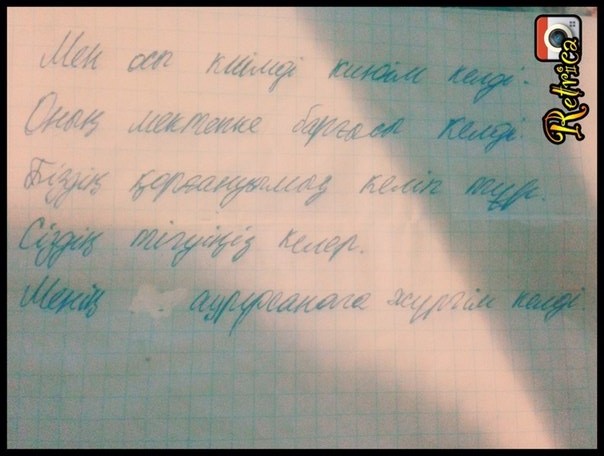 Мен осы киімді кигім келді.
Оның мектепке барғысы келді.
Біздің қорғанымыз келіп тұр.
Сіздің тігуіңіз келер.
Менің ауруханаға жүргім келді
Retrica